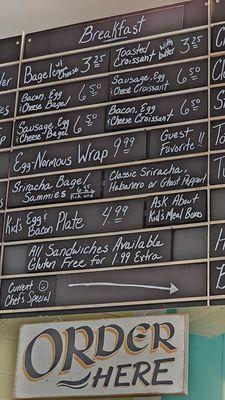 Breakfast
Bagel w/ Cream Cheese 3.25
Toasted Croissant with butter 2.95
Bacon, Egg & Cheese Bagel 6.50
Sausage, Egg & Cheese Croissant 6.50
Sausage, Egg & Cheese Bagel 6.50
Bacon, Egg & Cheese Croissant 6.50
Egg-Normous Wrap 9.99
Guest Favorite!!
Sriracha Bagel Sammies 6.75
Classic Sriracha, Habanero or Ghost Pepper!
Kid's Egg & Bacon Plate 4.99
Ask About Kid's Meal Boxes
All Sandwiches Available
Gluten Free for 1.99 Extra
Current
Chef's Special
ORDER
HERE